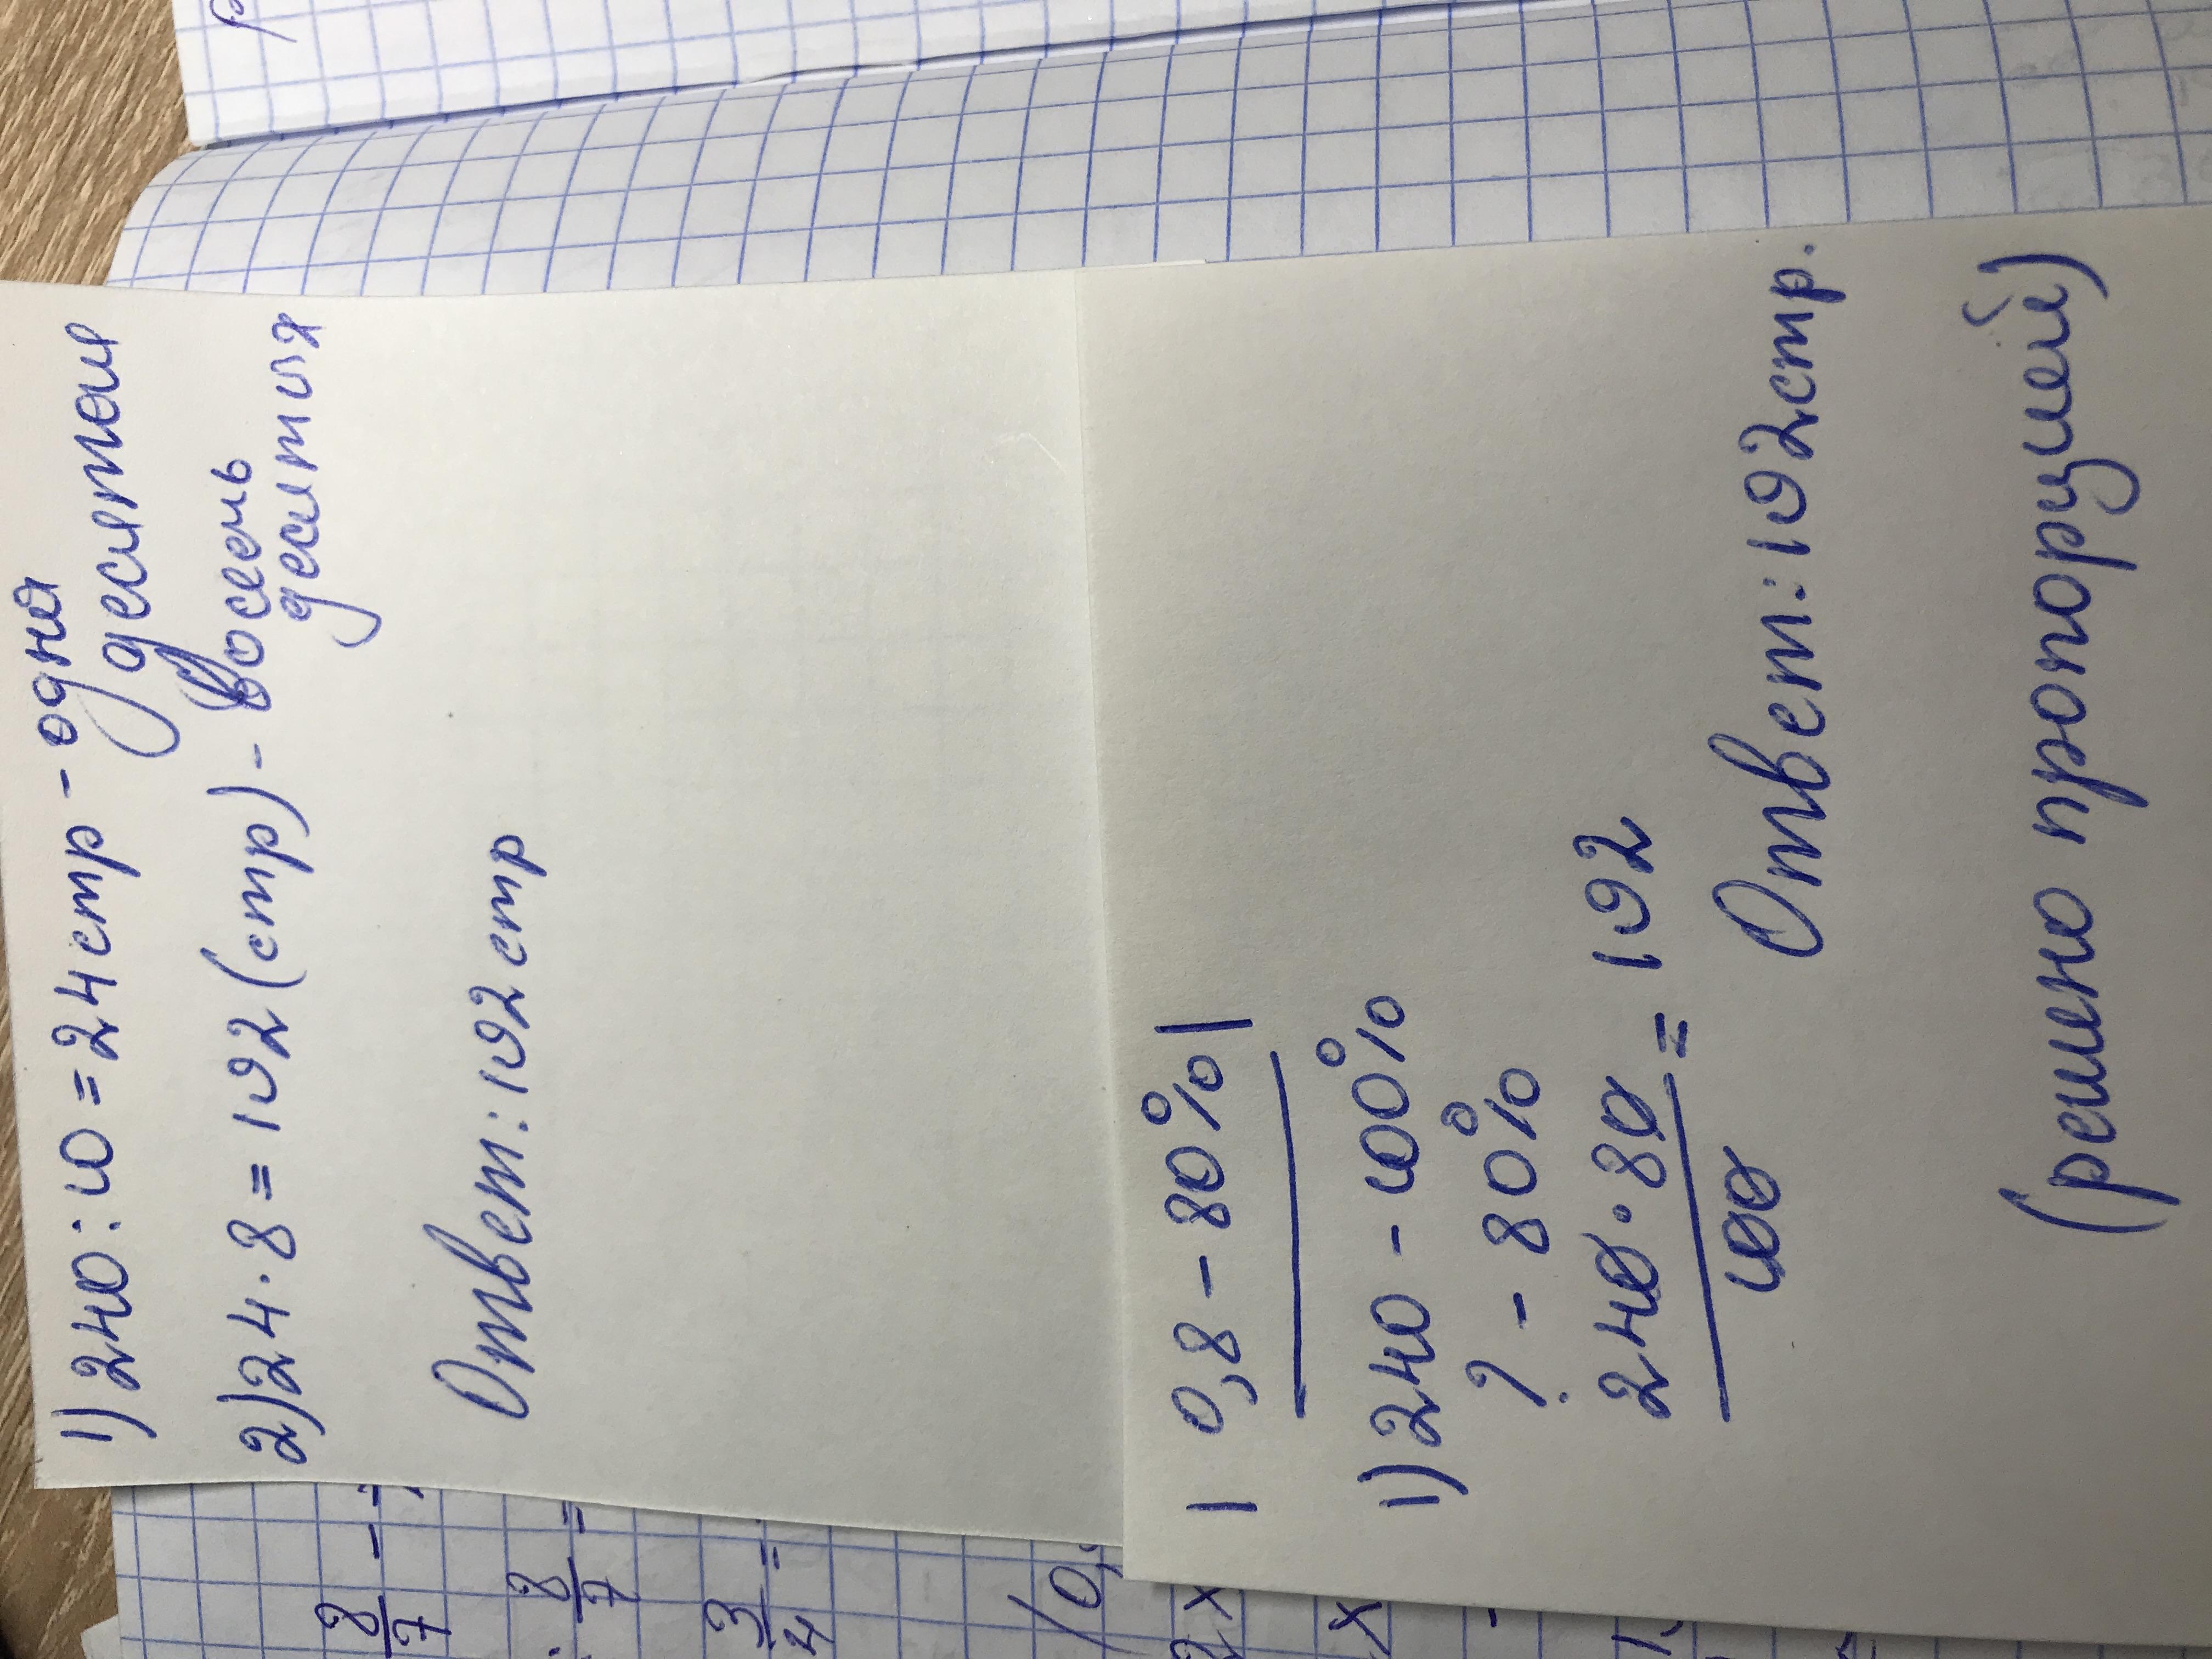 1) 240 : 10 = 24 стр - одна
десятая
2) 24 · 8 = 192 (стр) - восемь
десятых
Ответ: 192 стр
| 0,8 - 80% |
1) 240 - 100%
? - 80%
240 · 80
100
= 192
Ответ: 192 стр.
(решено пропорцией)
8
7
-
· 8
7
=
3
4
=